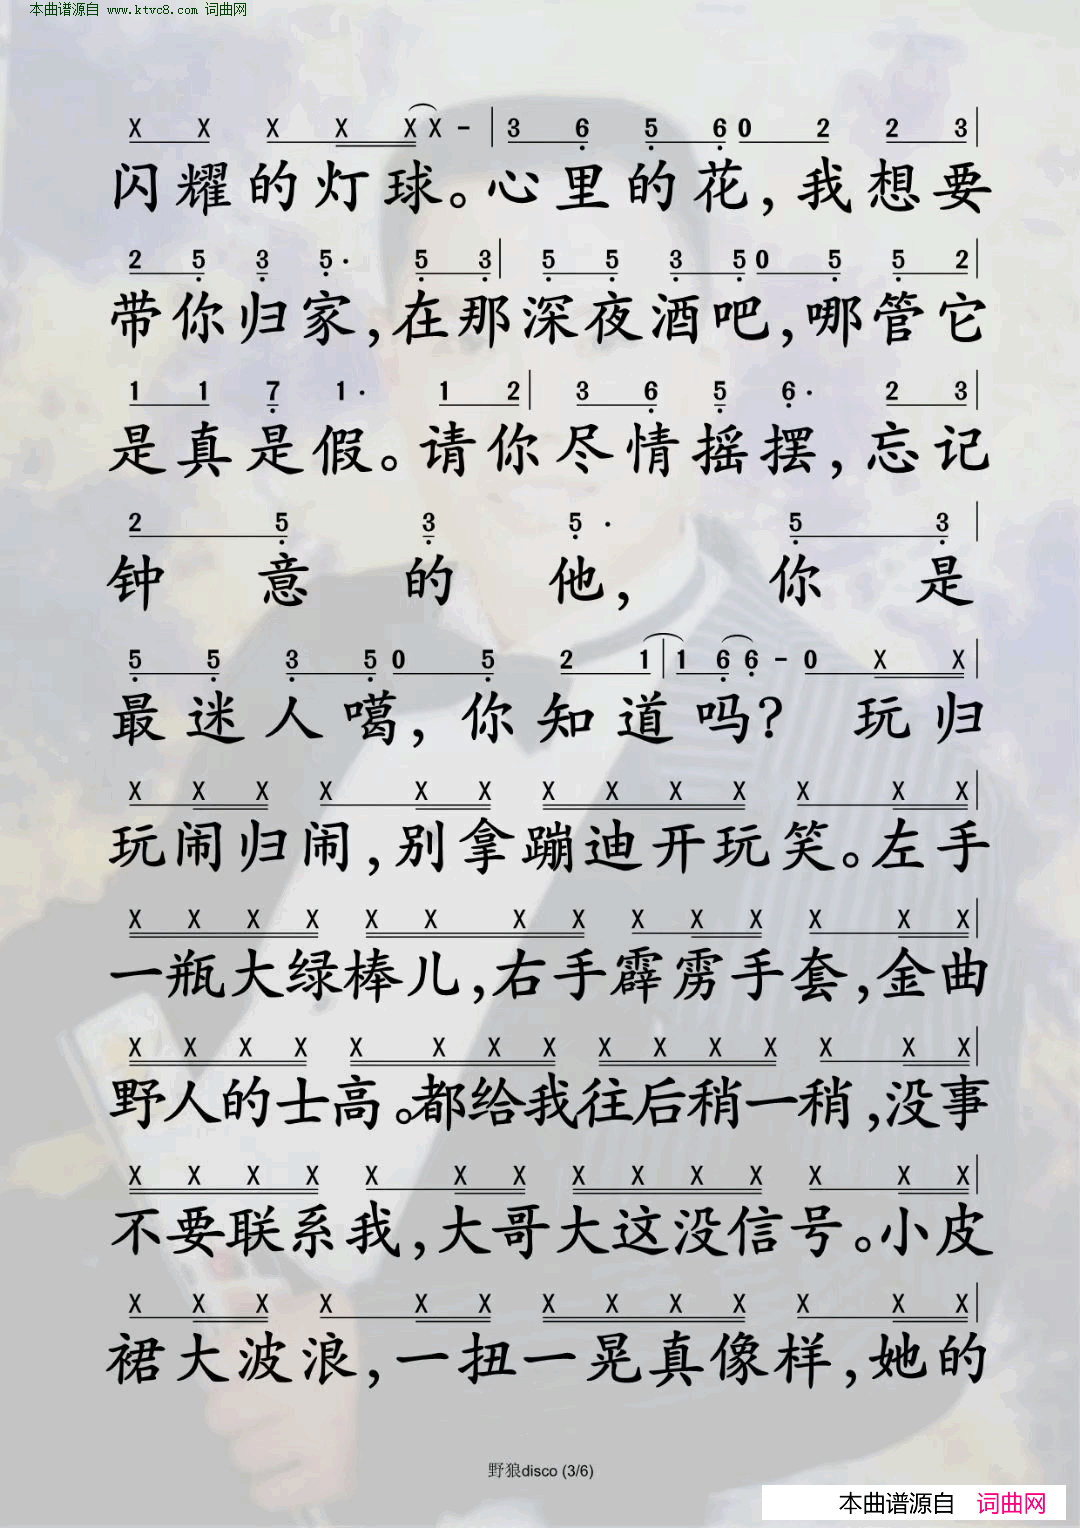 本曲谱源自 www.ktvc8.com 词曲网
X X X X X X - | 3 6 5 6 0 2 2 3 |
闪耀的灯球。心里的花,我想要
2 5 3 5 · 5 3 | 5 5 3 5 0 5 5 2 |
带你归家,在那深夜酒吧,哪管它
1 1 7 1 · 1 2 | 3 6 5 6 · 2 3 |
是真是假。请你尽情摇摆,忘记
2 5 3 5 · 5 3 |
钟意的他,你是
5 5 3 5 0 5 2 1 | 1 6 6 - 0 X X |
最迷人噶,你知道吗? 玩归
X X X X X X X X X X X X X |
玩闹归闹,别拿蹦迪开玩笑。左手
X X X X X X X X X X X X X X |
一瓶大绿棒儿,右手霹雳手套,金曲
X X X X X X X X X X X X X X X |
野人的士高。都给我往后稍一稍,没事
X X X X X X X X X X X X X X |
不要联系我,大哥大这没信号。小皮
X X X X X X X X X X X X X |
裙大波浪,一扭一晃真像样,她的
野狼disco (3/6)
本曲谱源自 词曲网